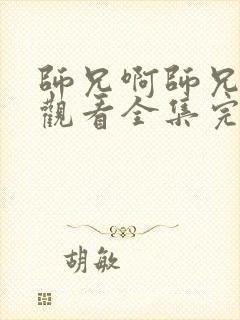 師兄啊師兄
觀看全集完
胡敏